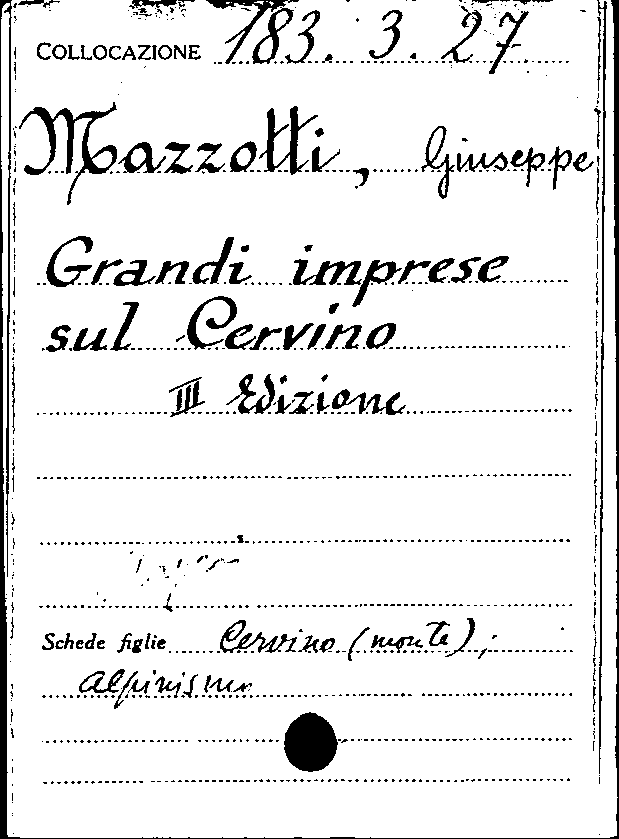 COLLOCAZIONE 183. 3. 27
Mazzotti, Giuseppe
Grandi imprese
sul Cervino
III Edizione
Schede figlie Cervino (monte);
Alpinismo